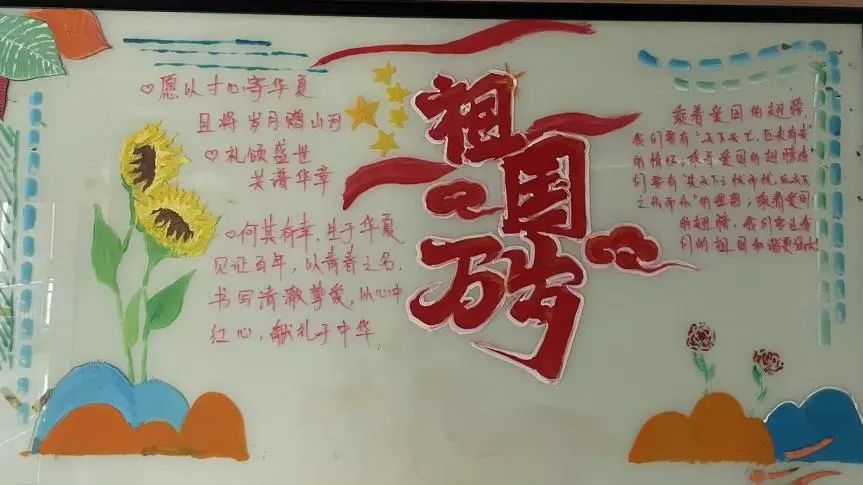 ♡愿以寸心寄华夏
且将岁月赠山河
♡礼颂盛世
共谱华章
♡何其有幸,生于华夏
见证百年,以青春之名,
书写清澈挚爱,以心中
红心,献礼于中华
祖国万岁
乘着爱国的翅膀,
我们要有"天下兴亡,匹夫有责"
的情怀;乘着爱国的翅膀,我
们要有"先天下之忧而忧,后天下
之乐而乐"的理想;乘着爱国
的翅膀,我们
们的祖国和谐更强大!